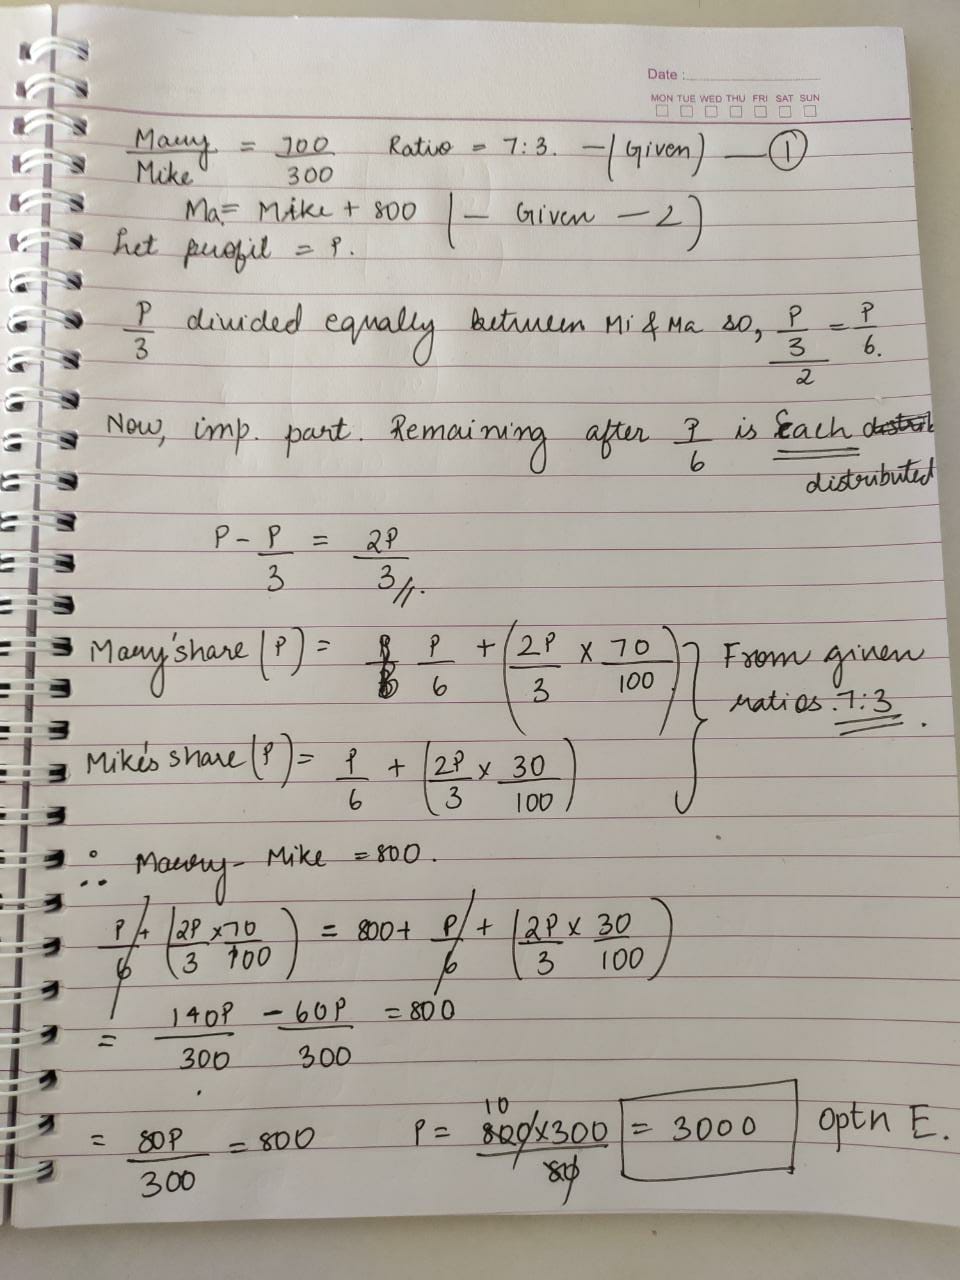 Date :
MON TUE WED THU FRI SAT SUN
Mary/Mike = 700/300 Ratio = 7:3. -(Given) - ①
Ma = Mike + 800 (- Given - 2)
Let profit = P.
P/3 divided equally between Mi & Ma so, (P/3)/2 = P/6.
Now, imp. part. Remaining after P/6 is Each
distributed
P - P/3 = 2P/3 //.
Mary'share (P) = P/6 + (2P/3 × 70/100) } From given
ratios. 7:3.
Mike's share (P) = P/6 + (2P/3 × 30/100)
∴ Mary - Mike = 800.
P/6 + (2P/3 × 70/100) = 800 + P/6 + (2P/3 × 30/100)
= 140P/300 - 60P/300 = 800
= 80P/300 = 800 P = 10 800×300/80 = 3000 Optn E.